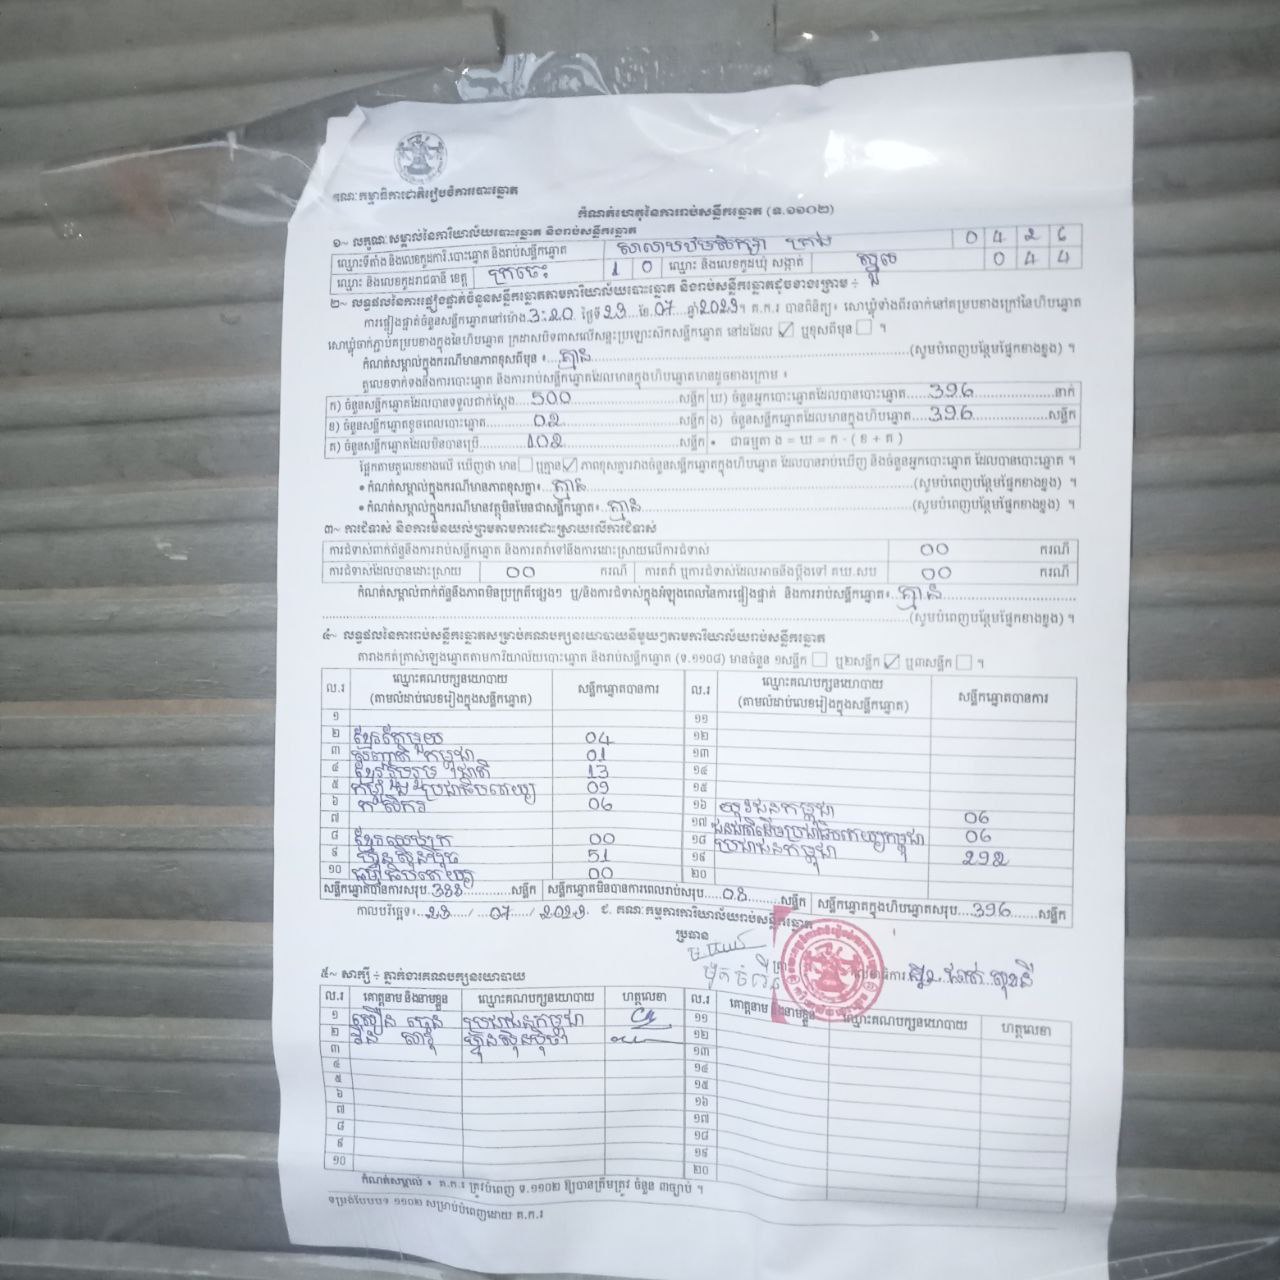 គណៈកម្មាធិការជាតិរៀបចំការបោះឆ្នោត
កំណត់ហេតុនៃការរាប់សន្លឹកឆ្នោត (ទ.១១០២)
១~ លក្ខណៈសម្គាល់នៃការិយាល័យបោះឆ្នោត និងរាប់សន្លឹកឆ្នោត
ឈ្មោះទីតាំង និងលេខកូដការិ.បោះឆ្នោត និងរាប់សន្លឹកឆ្នោត សាលាបឋមសិក្សា 0 4 2 6
ឈ្មោះ និងលេខកូដរាជធានី ខេត្ត ក្រចេះ 1 0 ឈ្មោះ និងលេខកូដឃុំ សង្កាត់ ស្នួល 0 4 4
២~ លទ្ធផលនៃការផ្ទៀងផ្ទាត់ចំនួនសន្លឹកឆ្នោតតាមការិយាល័យបោះឆ្នោត និងរាប់សន្លឹកឆ្នោតដូចខាងក្រោម ÷
ការផ្ទៀងផ្ទាត់ចំនួនសន្លឹកឆ្នោតនៅម៉ោង 3:20 ថ្ងៃទី 23 ខែ 07 ឆ្នាំ 2023។ គ.ក.រ បានពិនិត្យ៖ សោឃ្លុំទាំងពីរចាក់នៅគម្របខាងក្រៅនៃហិបឆ្នោត
សោឃ្លុំចាក់ភ្ជាប់គម្របខាងក្នុងនៃហិបឆ្នោត ក្រដាសបិទពាសលើសន្ទះប្រឡោះស៊កសន្លឹកឆ្នោត នៅដដែល ☑ ឬខុសពីមុន ☐ ។
កំណត់សម្គាល់ក្នុងករណីមានភាពខុសពីមុន ៖ គ្មាន (សូមបំពេញបន្ថែមផ្នែកខាងខ្នង) ។
តួលេខទាក់ទងនឹងការបោះឆ្នោត និងការរាប់សន្លឹកឆ្នោតដែលមានក្នុងហិបឆ្នោតមានដូចខាងក្រោម ៖
ក) ចំនួនសន្លឹកឆ្នោតដែលបានទទួលជាក់ស្តែង 500 សន្លឹក ឃ) ចំនួនអ្នកបោះឆ្នោតដែលបានបោះឆ្នោត 396 នាក់
ខ) ចំនួនសន្លឹកឆ្នោតខូចពេលបោះឆ្នោត 02 សន្លឹក ង) ចំនួនសន្លឹកឆ្នោតដែលមានក្នុងហិបឆ្នោត 396 សន្លឹក
គ) ចំនួនសន្លឹកឆ្នោតដែលមិនបានប្រើ 102 សន្លឹក • ជាធម្មតា ង = ឃ = ក - ( ខ + គ )
ផ្អែកតាមតួលេខខាងលើ ឃើញថា មាន ☐ ឬគ្មាន ☑ ភាពខុសគ្នារវាងចំនួនសន្លឹកឆ្នោតក្នុងហិបឆ្នោត ដែលបានរាប់ឃើញ និងចំនួនអ្នកបោះឆ្នោត ដែលបានបោះឆ្នោត ។
• កំណត់សម្គាល់ក្នុងករណីមានភាពខុសគ្នា៖ គ្មាន (សូមបំពេញបន្ថែមផ្នែកខាងខ្នង) ។
• កំណត់សម្គាល់ក្នុងករណីមានវត្ថុមិនមែនជាសន្លឹកឆ្នោត៖ គ្មាន (សូមបំពេញបន្ថែមផ្នែកខាងខ្នង) ។
៣~ ការជំទាស់ និងការមិនយល់ព្រមតាមការដោះស្រាយលើការជំទាស់
ការជំទាស់ពាក់ព័ន្ធនឹងការរាប់សន្លឹកឆ្នោត និងការតវ៉ាទៅនឹងការដោះស្រាយលើការជំទាស់ 00 ករណី
ការជំទាស់ដែលបានដោះស្រាយ 00 ករណី ការតវ៉ា ឬការជំទាស់ដែលអាចនឹងប្តឹងទៅ គឃ.សប 00 ករណី
កំណត់សម្គាល់ពាក់ព័ន្ធនឹងភាពមិនប្រក្រតីផ្សេងៗ ឬ/និងការជំទាស់ក្នុងអំឡុងពេលនៃការផ្ទៀងផ្ទាត់ និងការរាប់សន្លឹកឆ្នោត៖ គ្មាន
(សូមបំពេញបន្ថែមផ្នែកខាងខ្នង) ។
៤~ លទ្ធផលនៃការរាប់សន្លឹកឆ្នោតសម្រាប់គណបក្សនយោបាយនីមួយៗតាមការិយាល័យរាប់សន្លឹកឆ្នោត
តារាងកត់គ្រាស់ឡេងឆ្នោតតាមការិយាល័យបោះឆ្នោត និងរាប់សន្លឹកឆ្នោត (ទ.១១០៨) មានចំនួន ១សន្លឹក ☐ ឬ២សន្លឹក ☑ ឬ៣សន្លឹក ☐ ។
ល.រ ឈ្មោះគណបក្សនយោបាយ (តាមលំដាប់លេខរៀងក្នុងសន្លឹកឆ្នោត) សន្លឹកឆ្នោតបានការ ល.រ ឈ្មោះគណបក្សនយោបាយ (តាមលំដាប់លេខរៀងក្នុងសន្លឹកឆ្នោត) សន្លឹកឆ្នោតបានការ
១ ១១
២ ខ្មែរតែមួយ 04 ១២
៣ សញ្ជាតិកម្ពុជា 01 ១៣
៤ ខ្មែររួបរួមជាតិ 13 ១៤
៥ កម្ពុជា 09 ១៥
៦ កសិករ 06 ១៦ យុវជនកម្ពុជា 06
៧ ១៧ ជនជាតិដើមប្រជាធិបតេយ្យកម្ពុជា 06
៨ ខ្មែរ 00 ១៨ ប្រជាជនកម្ពុជា 292
៩ ហ្វ៊ុនស៊ិនប៉ិច 51 ១៩
១០ ធម្មាធិបតេយ្យ 00 ២០
សន្លឹកឆ្នោតបានការសរុប 388 សន្លឹក សន្លឹកឆ្នោតមិនបានការពេលរាប់សរុប 08 សន្លឹក សន្លឹកឆ្នោតក្នុងហិបឆ្នោតសរុប 396 សន្លឹក
កាលបរិច្ឆេទ៖ 23 / 07 / 2023. ជ. គណៈកម្មការការិយាល័យរាប់សន្លឹកឆ្នោត
ប្រធាន
លេខាធិការ
៥~ សាក្សី ÷ ភ្នាក់ងារគណបក្សនយោបាយ
ល.រ គោត្តនាម និងនាមខ្លួន ឈ្មោះគណបក្សនយោបាយ ហត្ថលេខា ល.រ គោត្តនាម និងនាមខ្លួន ឈ្មោះគណបក្សនយោបាយ ហត្ថលេខា
១ ប្រជាជនកម្ពុជា ១១
២ ហ្វ៊ុនស៊ិនប៉ិច ១២
៣ ១៣
៤ ១៤
៥ ១៥
៦ ១៦
៧ ១៧
៨ ១៨
៩ ១៩
១០ ២០
កំណត់សម្គាល់ ៖ គ.ក.រ ត្រូវបំពេញ ទ.១១០២ ឱ្យបានត្រឹមត្រូវ ចំនួន ៣ច្បាប់ ។
ទម្រង់បែបបទ ១១០២ សម្រាប់បំពេញដោយ គ.ក.រ